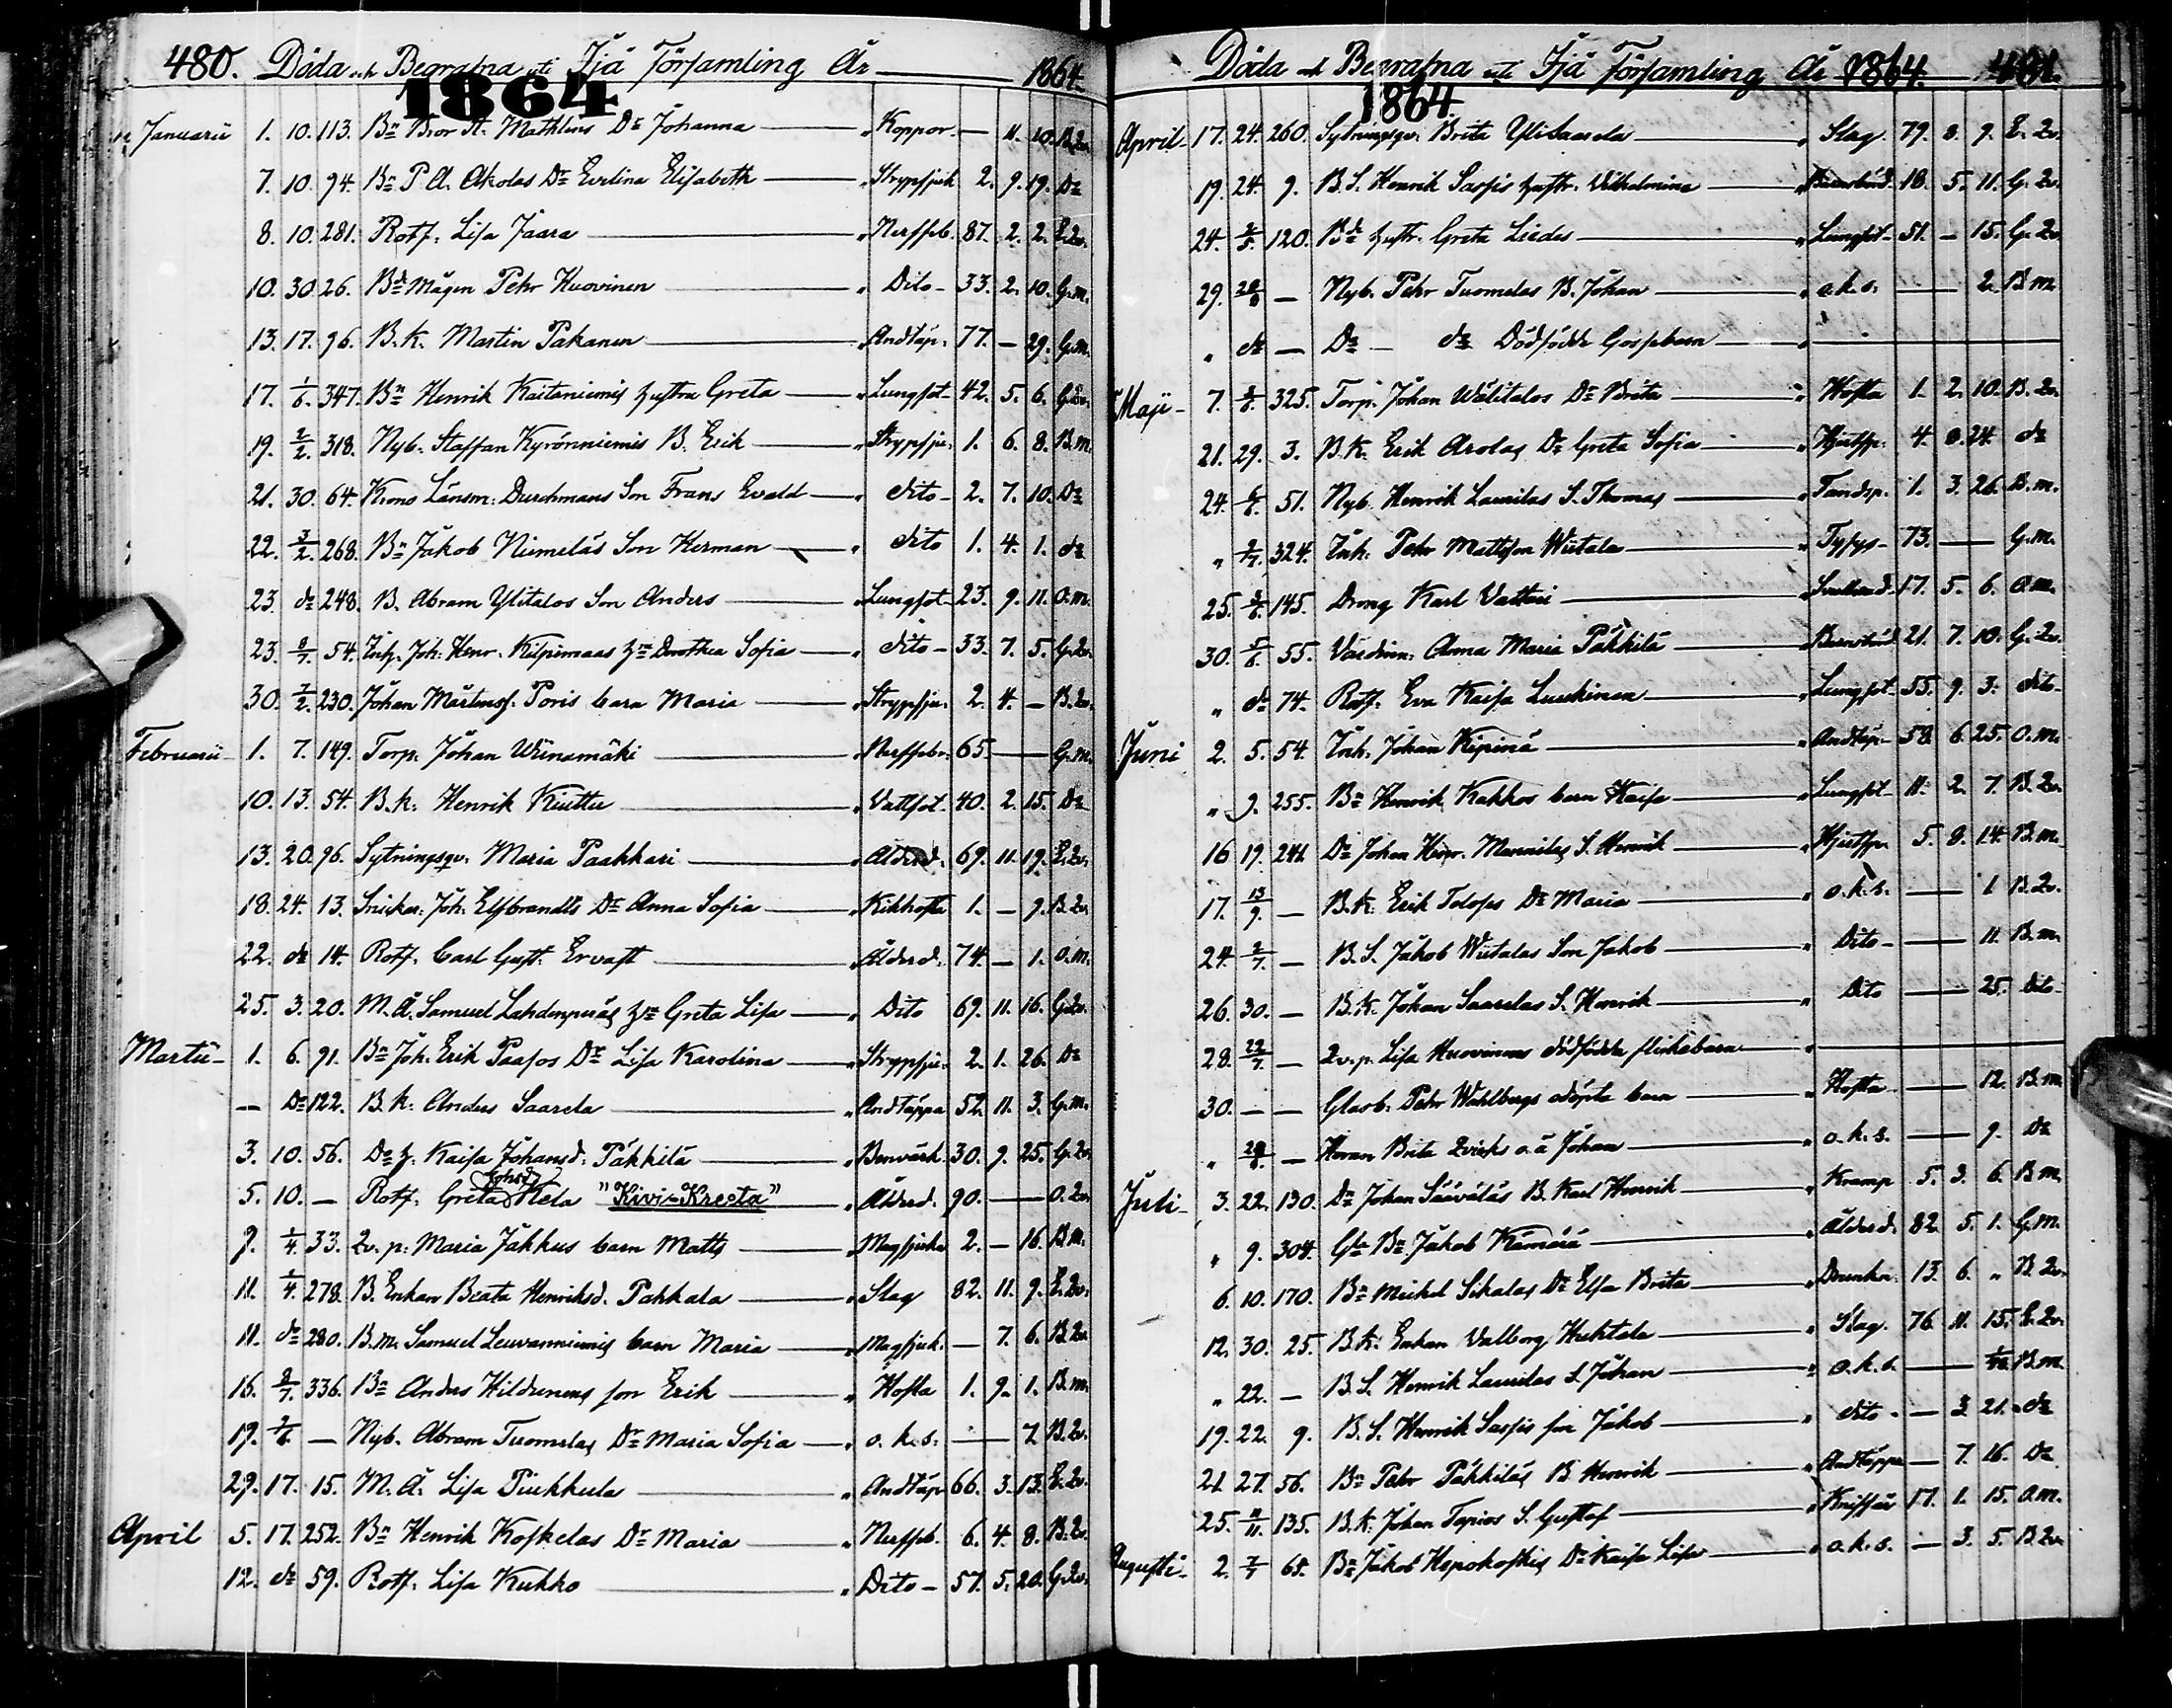 480. Döda och Begrafna uti Ijå Församling År 1864.
1864
Januarii 1. 10. 113. Bn Bror A. Mathlins Dr Johanna „ Koppor. — 11. 10. B.2v.
7. 10. 94. Bn P. A. Akolas Dr Evelina Elisabeth „ Strypsjuk 2. 9. 19. Do
8. 10. 281. Rotf. Lisa Jaara „ Nerffeb. 87. 2. 2. E.2v.
10. 30. 26. Bde Mågen Pehr Huovinen „ Dito 33. 2. 10. G.m.
13. 17. 96. B.K. Martin Pakanen „ Andtäp. 77. — 29. G.m.
17. 1/6. 347. Bn Henrik Kaitaniemis hustru Greta „ Lungsot 42. 5. 6. G.2v.
19. 2/2. 318. Nyb. Staffan Kyrönniemis B. Erik „ Strypsju. 1. 6. 8. B.m.
21. 30. 64. Krono Länsm. Durchmans Son Frans Evald „ dito 2. 7. 10. Do
22. 3/2. 268. Bn Jakob Niemeläs Son Herman „ dito 1. 4. 1. do
23. do 248. B. Abram Ylitalos Son Anders „ Lungsot 23. 9. 11. O.m.
23. 8/7. 54. Inh. Joh. Henr. Kilpimaas hu Dorothea Sofia „ dito 33. 7. 5. G.2v.
30. 7/2. 230. Johan Mårtenss. Poris barn Maria „ Strypsju. 2. 4. — B.2v.
Februarii 1. 7. 149. Torp. Johan Wiinamäki „ Nerffebr. 65. — G.m.
10. 13. 54. B.K. Henrik Kiuttu „ Vattsot. 40. 2. 15. Do
13. 20. 96. Sytningsqv. Maria Paakkari „ Ålderd. 69. 11. 19. E.2v.
18. 24. 13. Snickar. Joh. Elfbrandts Dr Anna Sofia „ Kikhosta 1. — 9. B.2v.
22. do 14. Rotf. Carl Gust. Ervast „ Ålderd. 74. — 1. O.m.
25. 3. 20. M.Å. Samuel Lahdenperäs hu Greta Lisa „ Dito 69. 11. 16. G.2v.
Martii 1. 6. 91. Bn Joh. Erik Paasos Dr Lisa Karolina „ Strypsju. 2. 1. 26. Do
— Do 122. B.K. Anders Saarela „ Andtäppa 52. 11. 3. G.m.
3. 10. 56. Do h. Kaisa Johansd. Päkkilä „ Benvärk. 30. 9. 25. G.2v.
5. 10. — Rotf. Greta Johsd. Kela "Kivi-Kreeta" „ Ålderd. 90. — O.2v.
9. 1/4. 33. 2v.p. Maria Jakkus barn Matts „ Magsjuka 2. — 16. B.m.
11. 1/4. 278. B. Enkan Beata Henriksd. Pahkala „ Slag 82. 11. 9. E.2v.
11. do 280. B.m. Samuel Leuvanniemis barn Maria „ Magsjuk. — 7. 6. B.2v.
16. 8/7. 336. Bn Anders Hildunens son Erik „ Hosta 1. 9. 1. B.m.
19. 2/6. — Nyb. Abram Tuomelas Dr Maria Sofia „ o.k.s. — 7. B.2v.
29. 17. 15. M.Å. Lisa Tiukkula „ Andtäp 66. 3. 13. E.2v.
April 5. 17. 252. Bn Henrik Koskelas Dr Maria „ Nerffeb. 6. 4. 8. B.2v.
12. do 59. Rotf. Lisa Kukko „ Dito 57. 5. 20. G.2v.
Döda och Begrafna uti Ijå Församling År 1864. 481.
1864
April 17. 24. 260. Sytningsqv. Brita Ylisaarela „ Slag. 79. 8. 9. E.2v.
19. 24. 9. B.S. Henrik Sassis hustr. Vilhelmina „ Barnsbörd. 18. 5. 11. G.2v.
24. 2/5. 120. Bde hustr. Greta Liedes „ Lungsot 51. — 15. G.2v.
29. 28/8 — Nyb. Pehr Tuomelas B. Johan „ o.k.s. — 2. B.m.
„ do — Do — do Dödfödde Gossebarn
Maji 7. 325. Torp. Johan Wälitalos Dr Brita „ Hosta 1. 2. 10. B.2v.
21. 29. 3. B.K. Erik Arolas Dr Greta Sofia 4. 8. 24. do
24. 51. Nyb. Henrik Laurilas S. Thomas „ Tandsp. 1. 3. 26. B.m.
„ 2/7. 324. Inh. Pehr Mattsson Wiitala 73. — G.m.
25. 145. Dreng Karl Vattari 17. 5. 6. O.m.
30. 55. Värdinn. Anna Maria Päkkilä „ Barnsbörd 21. 7. 10. G.2v.
„ do 74. Rotf. Eva Kaisa Luukinen „ Lungsot 55. 9. 3. dito
Juni 2. 5. 54. Inh. Johan Kipinä „ Andtäp. 58. 6. 25. O.m.
„ 9. 255. Bn Henrik Kakkos barn Kaisa „ Lungsot 11. 2. 7. B.2v.
16 19. 241. Do Johan Henr. Mannilas S. Henrik 5. 8. 14. B.m.
17. 13/9. — B.K. Erik Tolops Dr Maria „ o.k.s. — 1 B.2v.
24. 2/7. — B.S. Jakob Wiitalas Son Jakob „ Dito — 11. B.m.
26. 30. — B.K. Johan Saarelas S. Henrik „ Dito — 25. Dito
28. 22/7. — 2v.p. Lisa Huovinens dödfödda flickebarn
30. — — Glasb. Pehr Wahlbergs odöpta barn „ Hosta — 12. B.m.
„ — Horan Brita o.ä Johan „ o.k.s. — 9. Do
Juli 3. 22. 130. Do Johan Sääväläs B. Karl Henrik „ Kramp 5. 3. 6. B.m.
„ 9. 304. Gla Bn Jakob Kämärä „ Ålderd. 82. 5. 1. G.m.
6. 10. 170. Bn Mickel Sikalas Dr Elsa Brita „ Drunkn. 13. 6. „ B.2v.
12. 30. 25. B.K. Enkan Valborg Huhtala „ Slag. 76. 11. 15. E.2v.
„ 22. — B.S. Henrik Laurilas S. Johan „ o.k.s. — B.m.
19. 22. 9. B.S. Henrik Sassis son Jakob „ dito — 3 21. do
21. 27. 56. Bn Pehr Päkkiläs B. Henrik „ Andtäppa — 7. 16. Do
25. 135. B.K. Johan Tapios S. Gustaf 17. 1. 15. O.m.
Augusti 2. 7/7 65. Bn Jakob Hepokoskis Dr Kaisa Lisa „ o.k.s. — 3. 5. B.2v.